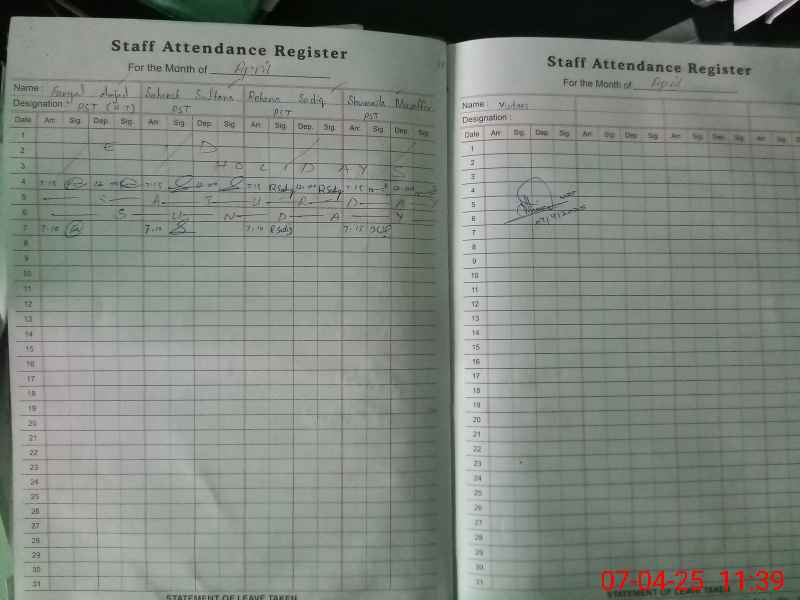 Staff Attendance Register
For the Month of April
Name :
Sultana Rehana Sadiq
Designation : PST (HT) PST PST PST
Date Arr. Sig. Dep. Sig. Arr. Sig. Dep. Sig. Arr. Sig. Dep. Sig. Arr. Sig. Dep. Sig.
1
2 E I D
3 H O L I D A Y S
4 7.15 12.00 7.15 12.00 7.15 RSdiq 12.00 RSdiq 7.15 12.00
5 S A T U R D A Y
6 S U N D A Y
7 7.10 7.10 7.10 RSdiq 7.15
8
9
10
11
12
13
14
15
16
17
18
19
20
21
22
23
24
25
26
27
28
29
30
31
STATEMENT OF LEAVE TAKEN
Staff Attendance Register
For the Month of April
Name : Visitors
Designation :
Date Arr. Sig. Dep. Sig. Arr. Sig. Dep. Sig. Arr. Sig. Dep. Sig. Arr. Sig.
1
2
3
4
5
6
7
8
9
10
11
12
13
14
15
16
17
18
19
20
21
22
23
24
25
26
27
28
29
30
31
STATEMENT OF LEAVE TAKEN
07-04-25 11:39